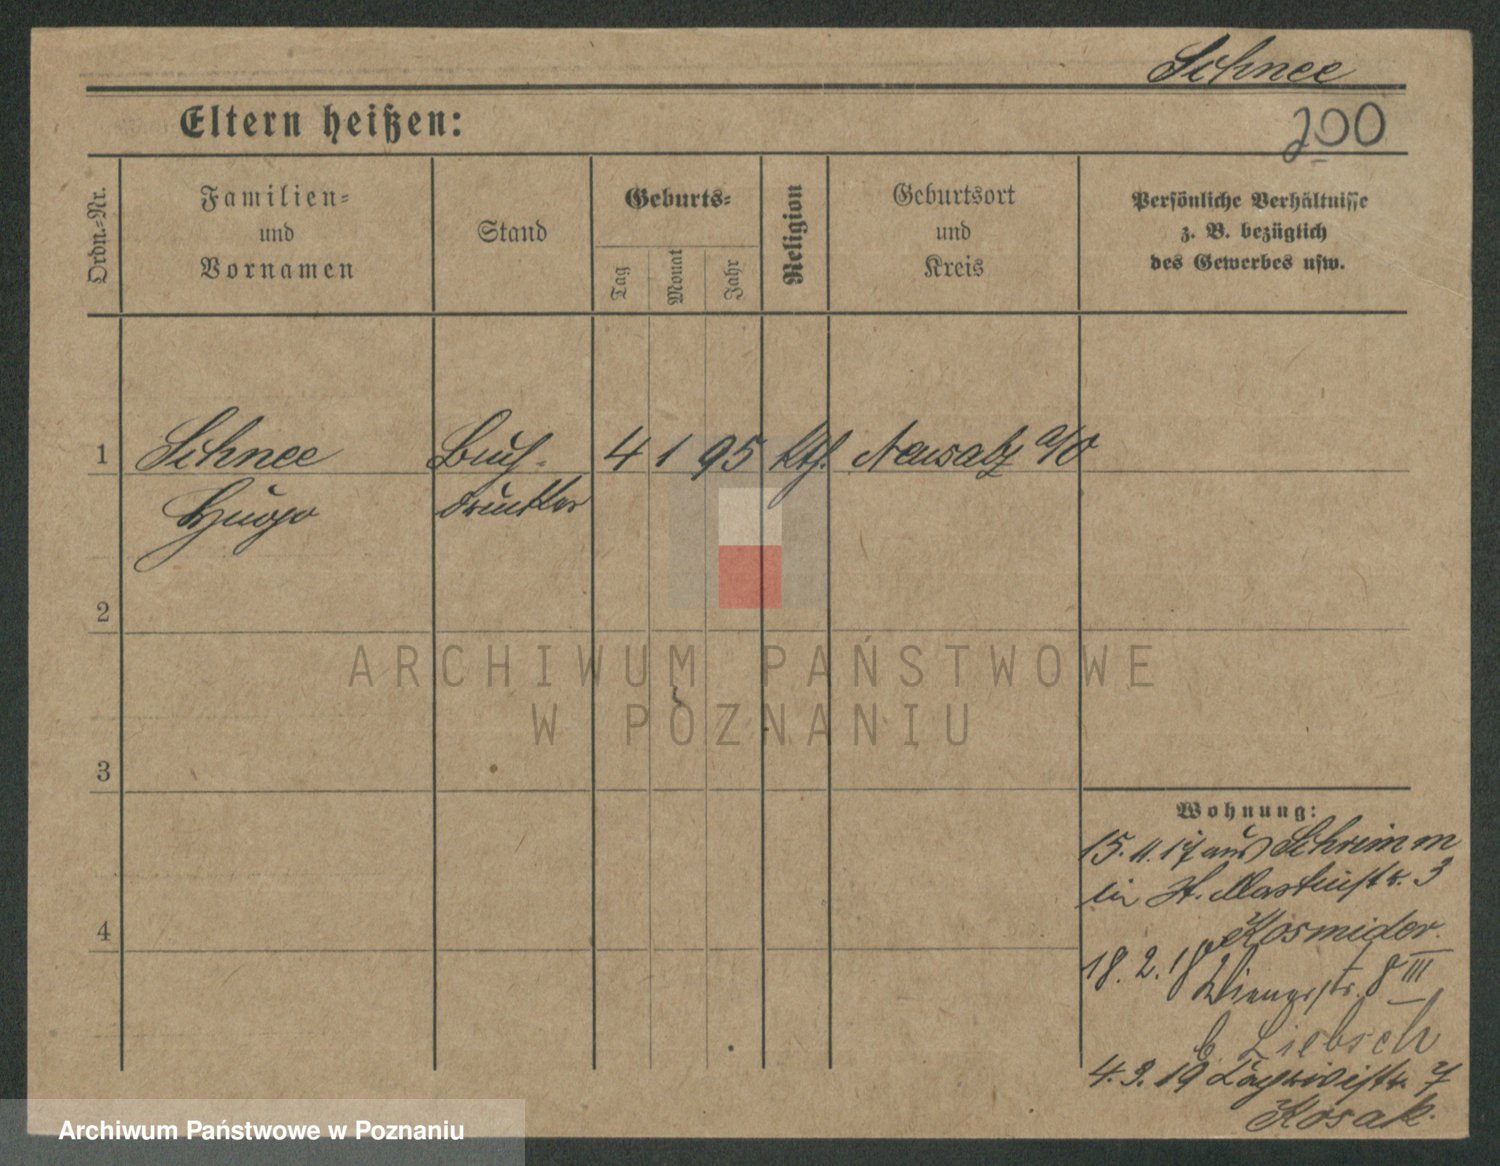 Schnee
Eltern heißen:
200
Ordn.-Nr.
Familien-
und
Vornamen
Stand
Geburts-
Tag
Monat
Jahr
Religion
Geburtsort
und
Kreis
Persönliche Verhältnisse
z. B. bezüglich
des Gewerbes usw.
1
Schnee
Buch-
4 1 95
kth.
Neusalz a/O
Hugo
drucker
2
ARCHIWUM PAŃSTWOWE
W POZNANIU
3
Wohnung:
15.11.17 aus Schrimm
in St. Martinstr. 3
Kosmider.
4
18.2.18 Wienerstr. 8 III
b. Liebsch
4.3.19 7
Kosak.
Archiwum Państwowe w Poznaniu